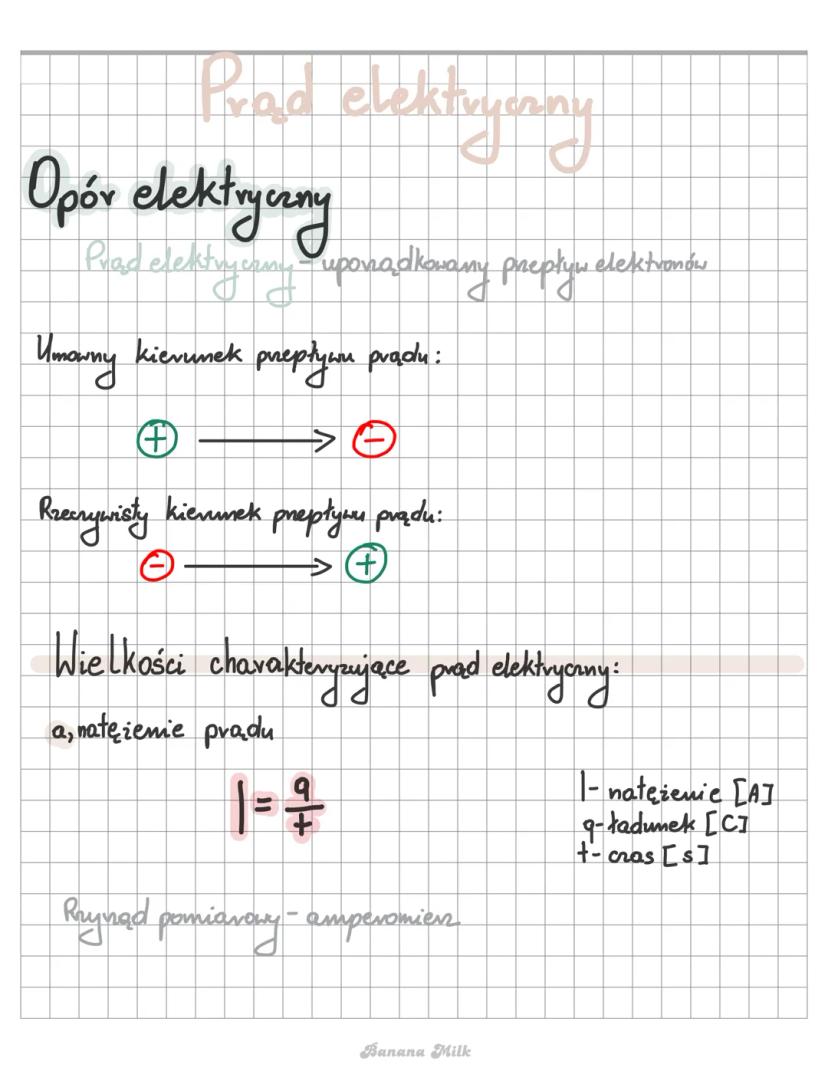 Prąd elektryczny
Opór elektryczny
Prąd elektryczny - uporządkowany przepływ elektronów
Umowny kierunek przepływu prądu:
+ → -
Rzeczywisty kierunek przepływu prądu:
- → +
Wielkości charakteryzujące prąd elektryczny:
a, natężenie prądu
I = q/t
I - natężenie [A]
q - ładunek [C]
t - czas [s]
Przyrząd pomiarowy - amperomierz
Banana Milk